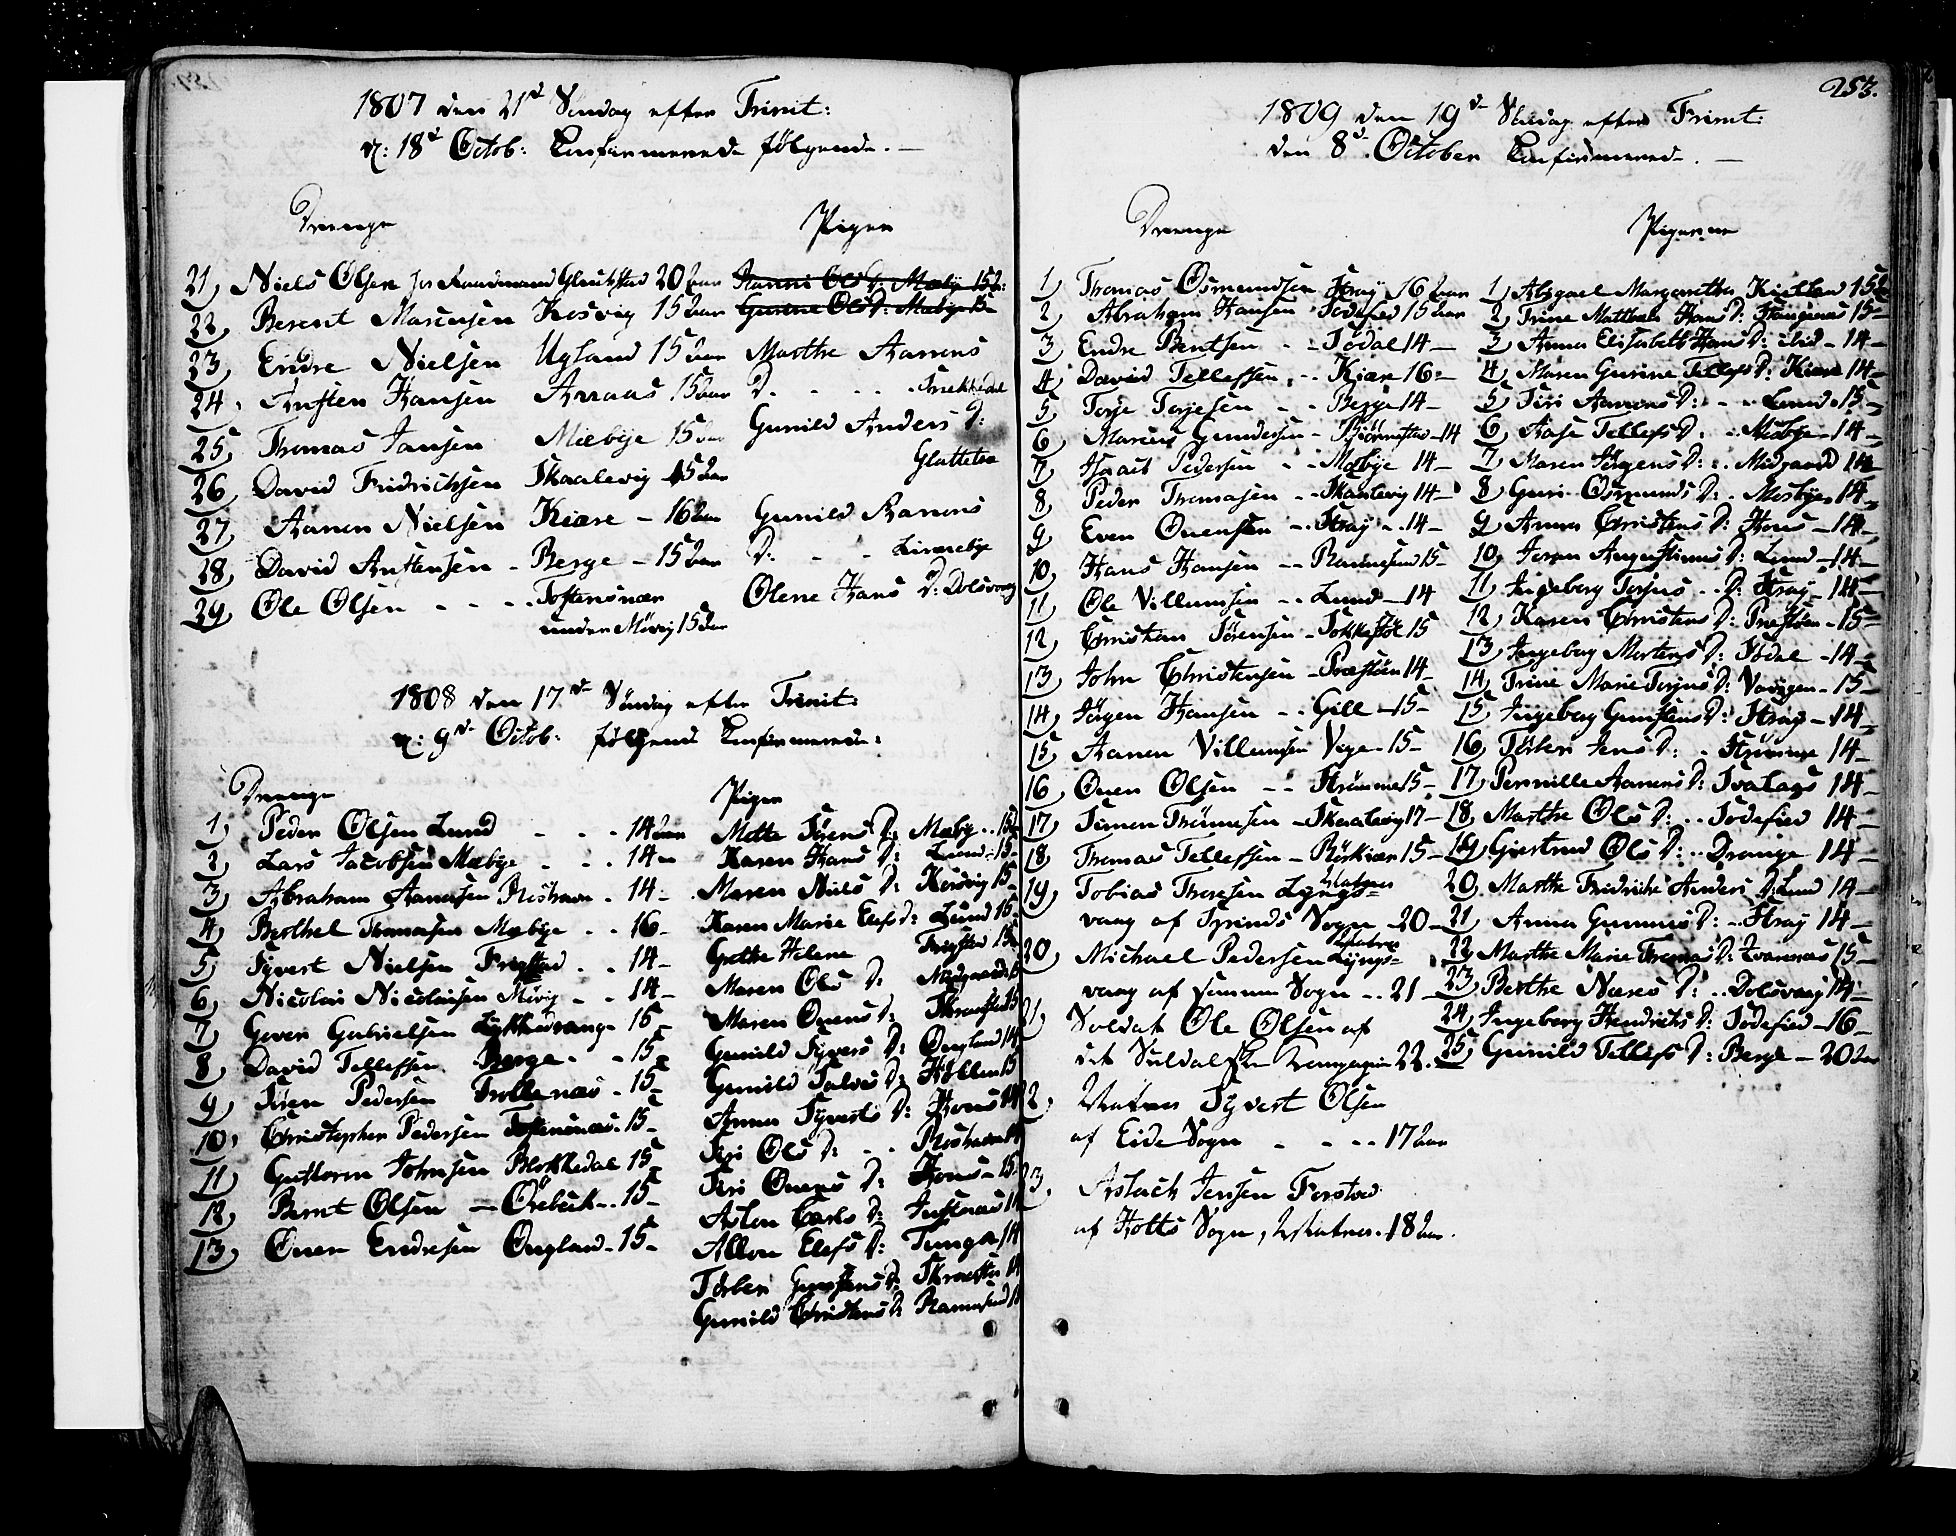 1807 den 21d Søndag efter Trinit:
d: 18d Octob: Confirmerede følgende. —
Drenge
21) Niels Olsen 20 aar
22) Berent Marcusen Kosvig 15 aar
23) Endre Nielsen Ugland 15 aar
24) Austen Hansen Aaraas 15 aar
25) Thomas Jansen Mæbÿe 15 aar
26) David Fridrichsen Skaalevig 15 aar
27) Aanen Nielsen Kiære – 16 aar
28) David Austensen – Berge – 15 aar
29) Ole Olsen - - - Toftensnæs
under Møvig 15 aar
Piger
Gurine Ols D: Mæbye 15
Marthe Aanens
D. - - - -
Gunild Anders D:
Glattetre
Gunild Aanens
D: - - -
Olene Hans D: Dolsvaag
1808 den 17de Søndag efter Trinit:
d: 9de Octob: følgende Confirmerede:
Drenge
1) Peder Olsen Lund - - - 14 aar
2) Lars Jacobsen Mæbye - - - 14 –
3) Abraham Aanensen - 14 –
4) Berthel Thomesen Mæbye - - 16 –
5) Syvert Nielsen Frigstad - - 14 –
6) Nicolai Nicolaisen Møvig - - 14 –
7) Given Gabrielsen 15 –
8) David Tellefsen Berge - - 15 –
9) Sören Pedersen Trollenæs - 15 –
10) Christopher Pedersen Toftensnæs - 15 –
11) Guttorm Johnsen Blokkedal 15
12) Bernt Olsen — Örebech - - 15 –
13) Ouen Endresen Ougland - 15 –
Piger
Mette Sörens D: Mæby - - 15
Karen Hans D: Lund - 15 –
Maren Niels D: Kosvig 15 –
Karen Marie Elefs D: Lund 15 –
Grethe Helene Frigstad 15
Maren Ols D:
Maren Ouens D:
Gunild Syvers D: Ougland 14
Gunild Salves D: 15
Anna Syverts D: Hons 14
Siri Ols D: - -
Siri Ouens D: Hons – 15 –
Aslou Carls D:
Allou Elefs D: Tunge 14
Torber Gunstens D:
Gunild Christens D:
253.
1809 den 19de Søndag efter Trinit:
den 8de October Confirmered. —
Drenge
1) Thomas Osmundsen Straÿ 16 aar
2) Abraham Hansen Jodefied 15 aar
3) Endre Bentsen - - Jödal 14 –
4) David Tellefsen - - Kiære 16 –
5) Torje Torjesen - - Berge 14 –
6) Marcus Gundersen – Biörnestad – 14
7) Isaac Pedersen - - Mæbÿe 14 –
8) Peder Thomasen - - Skaalevig 14 –
9) Even Ouensen - - Straÿ - - 14 –
10) Hans Hansen - - 15 –
11) Ole Villumsen - - Lund – 14
12) Christian Sörensen – 15
13) John Christensen – Præstöen 14 –
14) Jörgen Hansen - - Gill – 15 –
15) Aanen Villumsen Vege – 15 –
16) Ouen Olsen - - Strömme 15 –
17) Simon Thönnesen – Skaalevig 17 –
18) Thomas Tellefsen – Rörkiær 15 –
19) Tobias Thoresen Lyngs=
vaag af Sogn – 20 –
20) Michael Pedersen Lÿngs=
vaag af samme Sogn - - 21 –
21) Soldat Ole Olsen af
det Compagnie 22.
22) Matros Syvert Olsen
af Eide Sogn - - - - 17 aar
23) Aslach Jensen Forstad
af Holts Sogn, Matros. 18 aar.
Pigerne
1) Abigael Margaretha Kielland 15
2) Trine Mathea Hans D: 15 –
3) Anna Elisabeth Hans D: ibid – 14 –
4) Maren Gurine Tellefs D: Kiære 14 –
5) Siri Aanens D: - - Lund – 15 –
6) Aase Tellefs D: - - Mæbÿe – 14 –
7) Maren Jörgens D: - - Midgaard 14 –
8) Guri Osmunds D: - Mosbÿe 14 –
9) Anna Christens D: Hons – 14 –
10) Joran Augustinus D: Lund – 14 –
11) Ingeborg Torjus - - D: Straÿ – 14 –
12) Karen Christens D: Præstöen – 15 –
13) Ingeborg Mortens D: Jödal – 14 –
14) Trine Marie Torjus D: 15 –
15) Ingeborg Gunstens D: Straÿ – 14 –
16) Torber Jens D: - Strömme 14 –
17) Pernille Aanens D: 14 –
18) Marthe Ols D: - - Jodefied 14 –
19) Giertrud Ols D: - - Drange 14 –
20) Marthe Fridriche Anders D: Lund 14 –
21) Anna Gunnus D: - - Straÿ 14 –
22) Marthe Marie Thomas D: 15 –
23) Berthe D: - - Dolsvaag 14 –
24) Ingeborg Hendrichs D: Jodefied – 16 –
25) Gunild Tellefs D: Berge – 20 aar